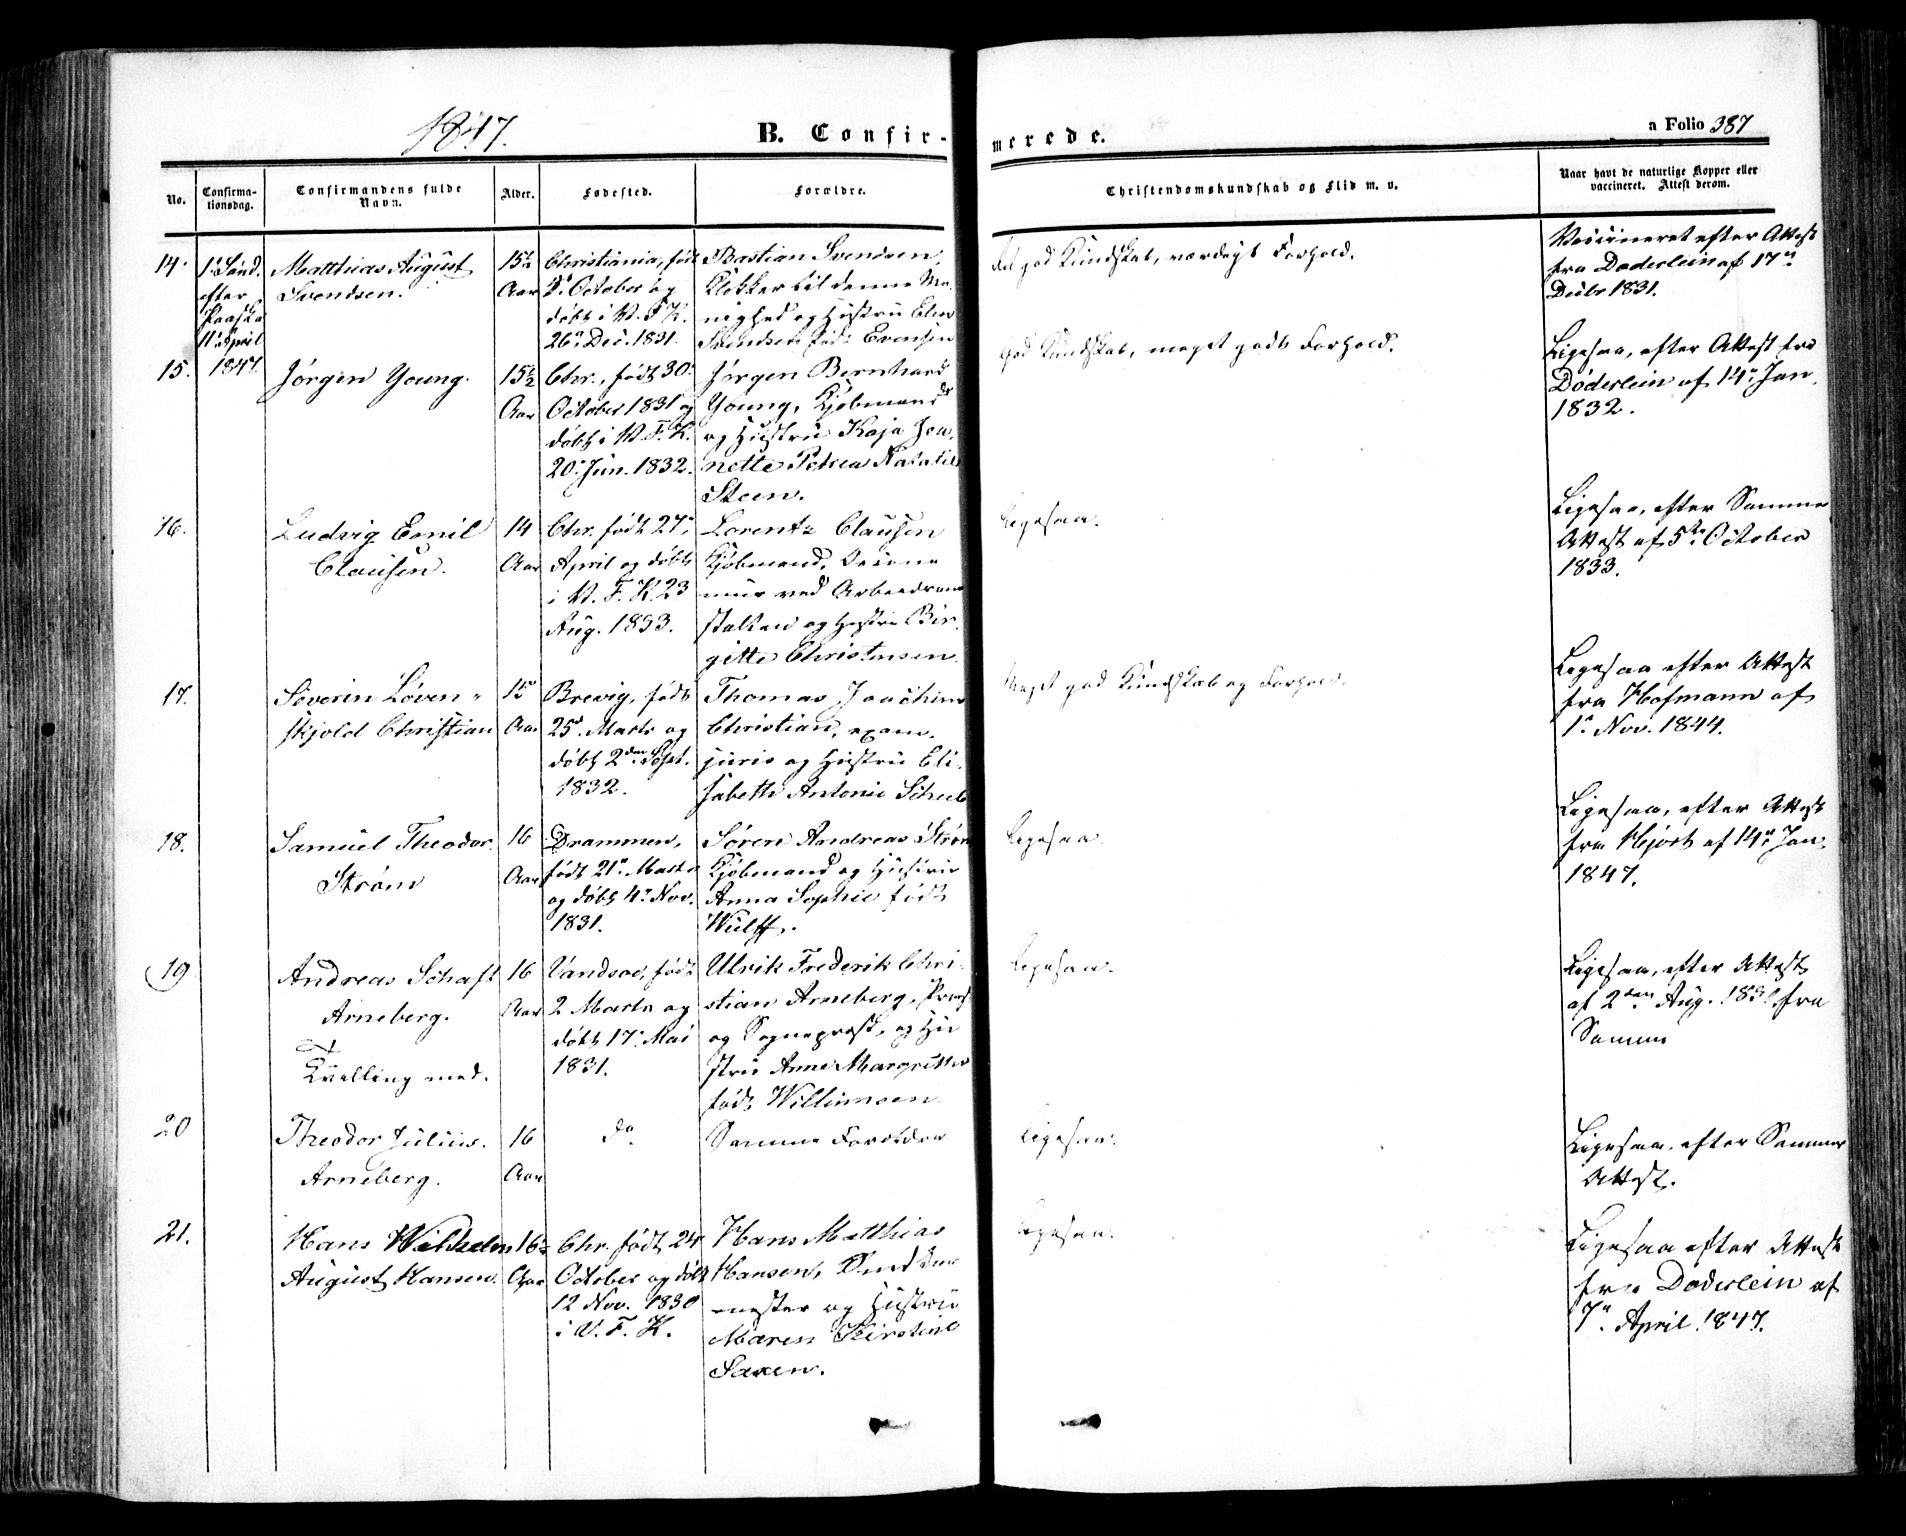 1847.
B. Confir-
merede.
a Folio 387
No.
Confirma-
tionsdag.
Confirmandens fulde
Navn.
Alder.
Fødested.
Forældre.
Christendomskundskab og Flid m. v.
Naar havt de naturlige Kopper eller
vaccineret. Attest derom.
14.
1. Sönd.
efter
Paaske
11. April
1847.
Matthias August
Svendsen.
15½
Aar
Christiania, født
October og
døbt i V. F. K.
26. Dec. 1831.
Bastian Svendsen,
Klokker til denne Me-
nighed og Hustru Elen
Svendsen født Evensen
god Kundskab, værdigt Forhold.
Vaccineret efter Attest
fra Døderlein af 17.
Decbr 1831.
15.
Jørgen Young.
15½
Aar
Chr., født 30.
October 1831 og
døbt i V. F. K.
20. Jun. 1832.
Jørgen Bernhard
Young, Kjøbmand
og Hustru Kaja Jea-
nette Petrea Natalie
Steen.
God Kundskab, meget godt Forhold.
Ligesaa, efter Attest fra
Døderlein af 14. Jan.
1832.
16.
Ludvig Emil
Clausen.
14
Aar
Chr. født 27.
April og døbt
i V. F. K. 23
Aug. 1833.
Lorentz Clausen
Kjøbmand,
ved
stalten og Hustru Bir-
gitte Christensen.
Ligesaa.
Ligesaa, efter Samme
Attest af 5te October
1833.
17.
Severin Løven-
skjold Christian
15
Aar
Brevig, født
25. Marts og
døbt 2den Sept.
1832.
Thomas Joachim
Christian, exam.
juris og Hustru Eli-
sabeth Antonie
Meget god Kundskab og Forhold.
Ligesaa efter Attest
fra Hofmann af
1. Nov. 1844.
18.
Samuel Theodor
Strøm
16
Aar
Drammen,
født 21. Marts
og døbt 4. Nov.
1831.
Søren Andreas Strøm
Kjøbmand og Hustru
Anna Sophie født
Wulff.
Ligesaa.
Ligesaa, efter Attest
fra Hjort af 14. Jan.
1847.
19
Andreas Schaft
Arneberg.
Tvilling med.
16
Aar
født
2 Marts og
døbt 17. Mai
1831.
Ulrik Frederik Chri-
stian Arneberg, Provst
og Sogneprest, og Hu-
stru Anne Margrethe
født Willumsen
Ligesaa.
Ligesaa, efter Attest
af 2den Aug. 1831 fra
Samme
20
Theodor Julius.
Arneberg.
16
Aar
Do
Samme Forældre
Ligesaa.
Ligesaa, efter Samme
Attest.
21.
Hans Wilhelm
August Hansen.
16½
Aar
Chr. født 24
October og døbt
12 Nov. 1830
i V. F. K.
Hans Matthias
Hansen,
mester og Hustru
Maren Kirstine
Saxen.
Ligesaa.
Ligesaa efter Attest
fra Døderlein af
7. April 1847.